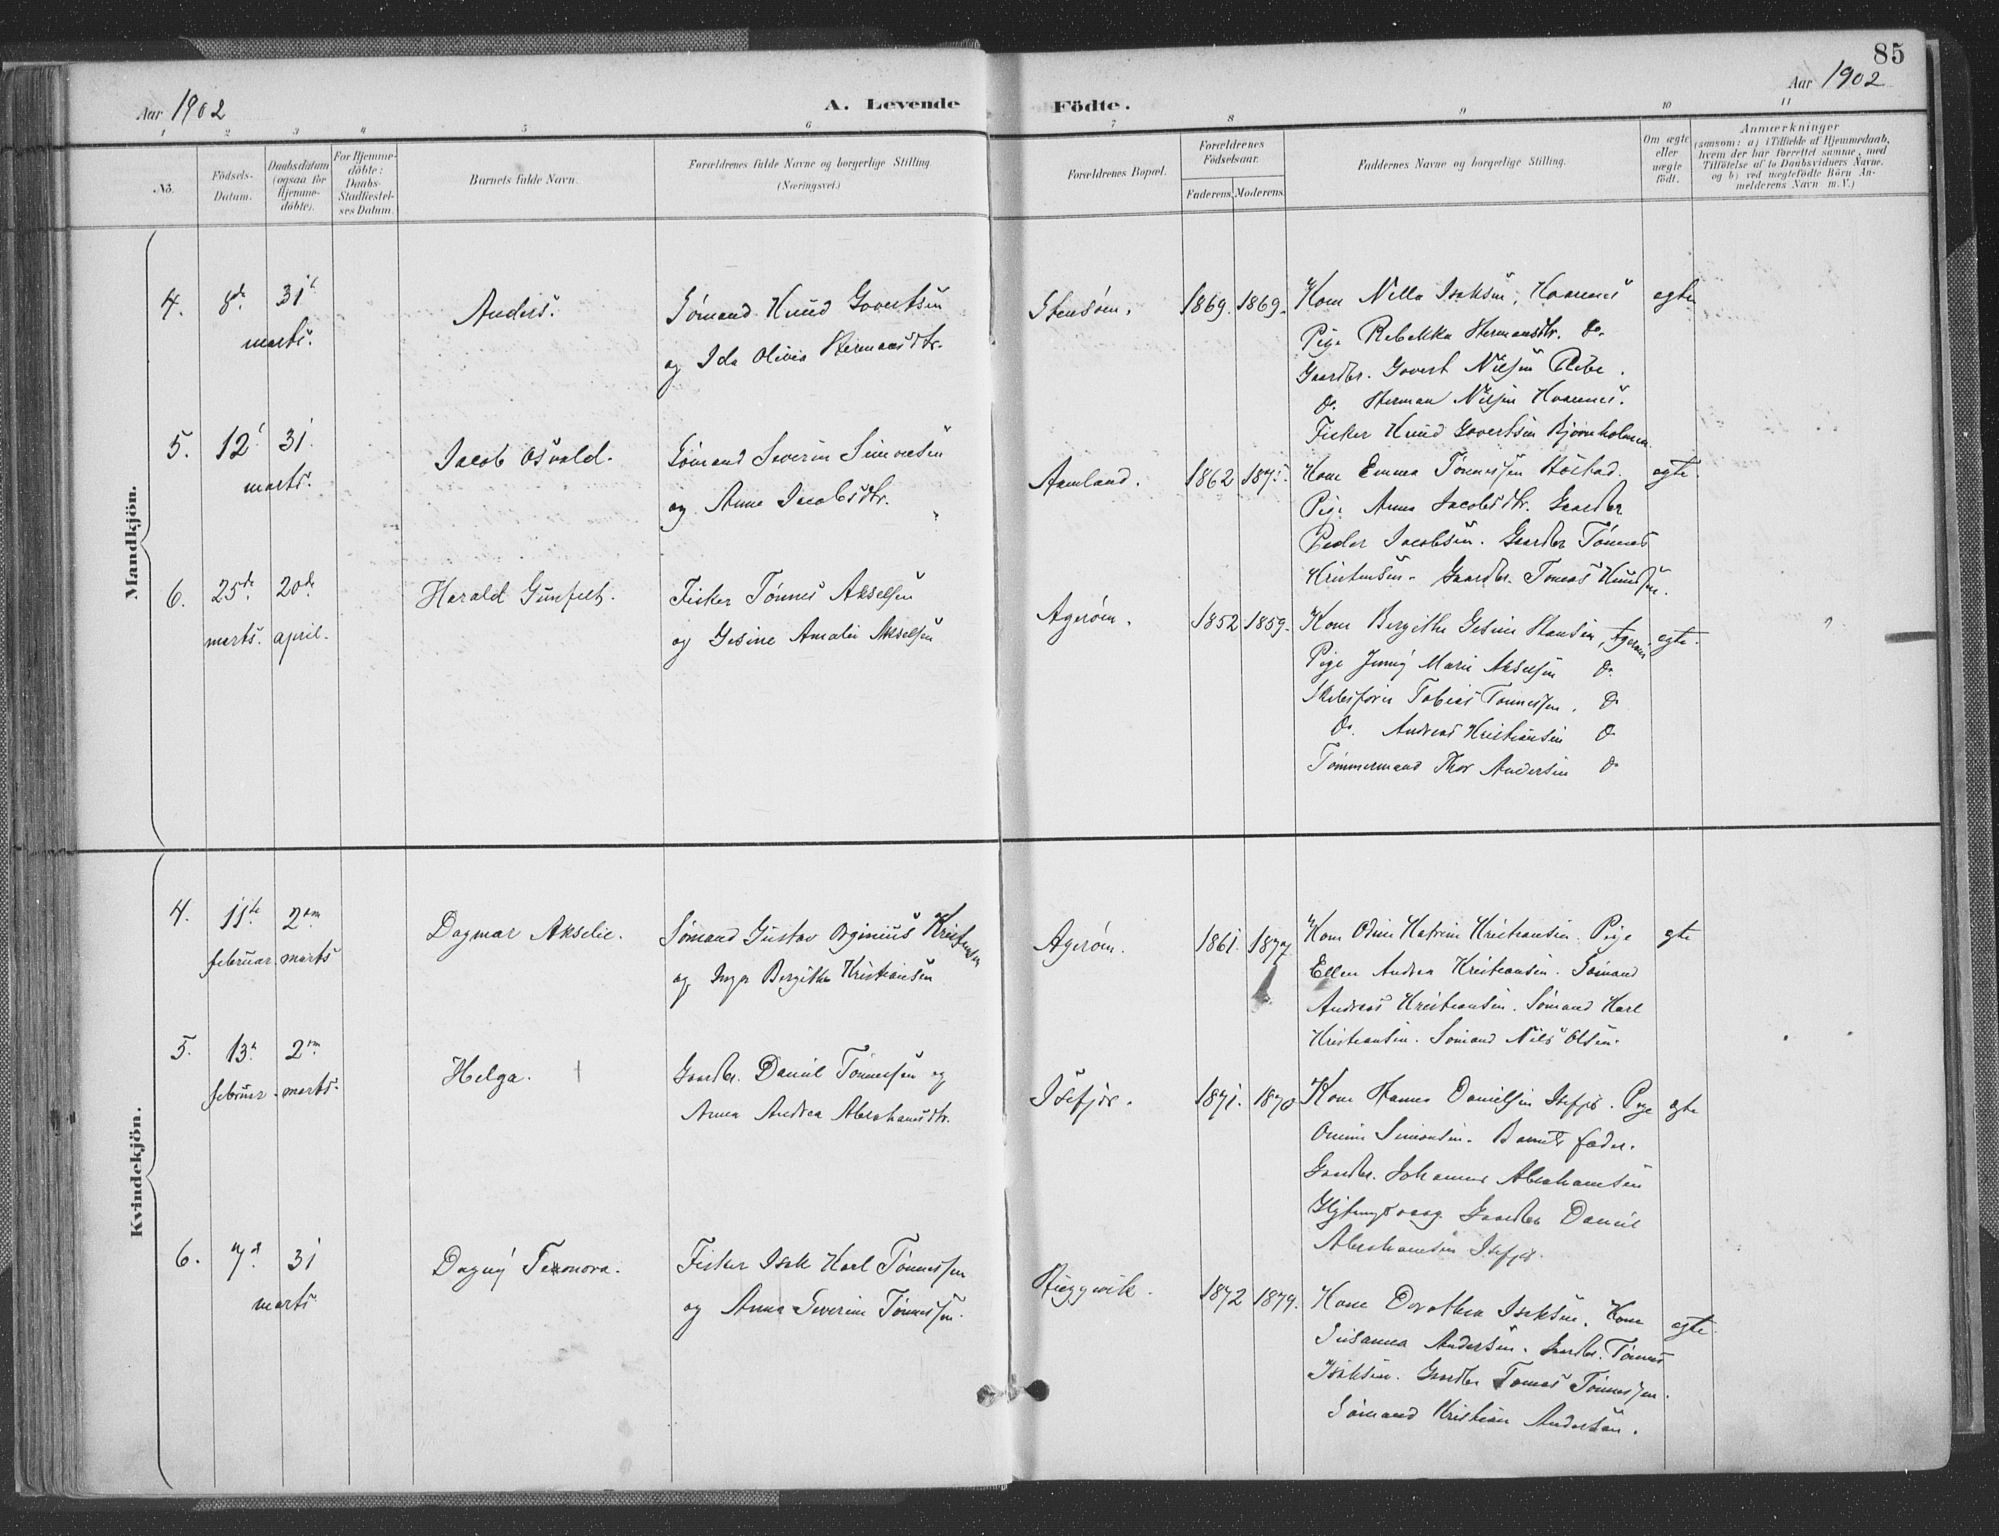 85
Aar 1902
A. Levende
Födte.
Aar 1902
1 2 3 4 5 6 7 8 9 10 11
No.
Födsels-
Datum.
Daabsdatum
(ogsaa for
Hjemme-
döbte).
For Hjemme-
döbte:
Daabs-
Stadfæstel-
ses Datum.
Barnets fulde Navn.
Forældrenes fulde Navne og borgerlige Stilling
(Næringsvei.)
Forældrenes Bopæl.
Forældrenes
Födselsaar.
Faderens. Moderens.
Faddernes Navne og borgerlige Stilling.
Om ægte
eller
uægte
födt.
Anmærkninger
(saasom: a) i Tilfælde af Hjemmedaab,
hvem der har forrettet samme, med
Tilföielse af to Daabsvidners Navne.
og b) ved uægtefödte Börn An-
melderens Navn m. V.)
Mandkjön.
4. 8de 31te
marts.
Anders.
Sømand Knud Govertsen
og Ida Olivia Hermansdtr.
1869. 1869.
Kone Nella Isaksen, Kvannes
Pige Rebekka Hermansdtr. Do.
Gaardbr. Govert Nilsen Rebe.
Do. Herman Nilsen Kvannes.
Fisker Knud Govertsen Bjørnholmen.
egte
5. 12te 31
marts.
Jacob Osvald.
Sømand Severin Simonsen
og Anna Jacobsdtr.
Aamland.
1862
Kone Emma Tønnessen
Pige Anna Jacobsdtr. Gaardbr
Peder Jacobsen. Gaardbr Tønnes
Kristensen. Gaardbr. Tomas Knudsen.
egte.
6. 25de 20de
marts. april.
Harald Gunfelt.
Fisker Tønnes Akselsen
og Gesine Amalie Akselsen
Agerøen.
1852 1859.
Kone Bergithe Gesine Hansen, Agerøen
Pige Jenny Marie Akselsen Do.
Skibsfører Tobias Tønnessen. Do
Do. Andreas Kristiansen Do
Tømmermand Thor Andersen Do
egte.
Kvindekjön.
4. 11te 2den
februar. marts
Dagmar Akselie.
Sømand Gustav Kristensen
og Inga Bergithe Kristiansen
Agerøen.
1861. 1877
Kone Odine Katrine Kristiansen. Pige
Ellen Andrea Kristiansen. Sømand
Andreas Kristiansen. Sømand Karl
Kristiansen. Sømand Nils Olsen.
egte
5. 13de 2den
februar. marts.
Helga.
Gaardbr. Daniel Tønnessen og
Anna Andrea Abrahamsdtr.
Isefjær.
1871. 1870
Kone Hanna Danielsen Isefjær. Pige
Simonsen. Barnets fader.
Gaardbr. Johannes Abrahamsen
Gaardbr Daniel
Abrahamsen Isefjær.
egte
6. 7de 31
marts
Dagny Teonora.
Fisker Isak Karl Tønnessen
og Anna Severine Tønnessen.
1872 1879.
Kone Dorothea Isaksen. Kone
Susanna Andersen. Gaardbr. Tønnes
Isaksen. Gaardbr Tomas Tønnessen.
Sømand Kristian Andersen.
egte.